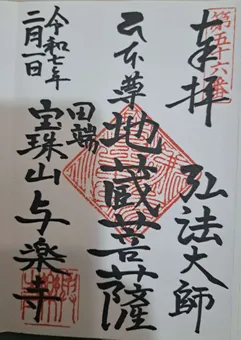 奉拝
第五十六番
弘法大師
本尊
地蔵菩薩
田端
宝珠山与楽寺
令和七年
二月一日